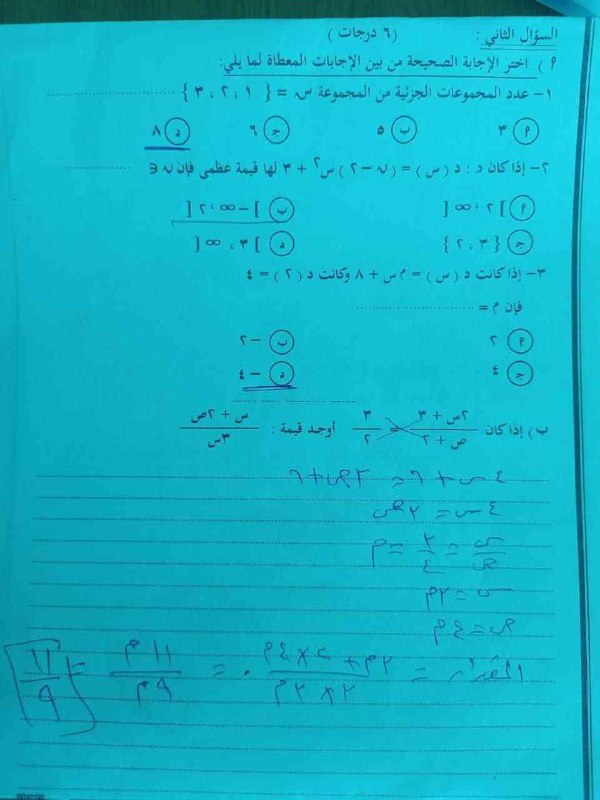 السؤال الثاني : (٦ درجات)
م) اختر الإجابة الصحيحة من بين الإجابات المعطاة لما يلي:
١- عدد المجموعات الجزئية من المجموعة س = { ١ ، ٢ ، ٣ } ..............................
م ٣ ب ٥ ج ٦ د ٨
٢- إذا كان د : د ( س ) = ( ن - ٢ ) س² + ٣ لها قيمة عظمى فإن ن ∋ ..............
م ] ٢ ، ∞ [ ب ] - ∞ ، ٢ [
ج { ٣ ، ٢ } د ] ٣ ، ∞ [
٣- إذا كانت د ( س ) = م س + ٨ وكانت د ( ٢ ) = ٤
فإن م = ..............................
م ٢ ب -٢
ج ٤ د -٤
ب ) إذا كان (٢س + ٣) / (ص + ٢) = ٣ / ٢ أوجد قيمة : (س + ٢ص) / ٣س
٤س + ٦ = ٣ص + ٦
٤س = ٣ص
س / ص = ٣ / ٤ = م
س = ٣م
ص = ٤م
المقدار = (٣م + ٢×٤م) / (٣×٣م) = ١١م / ٩م = ١١ / ٩